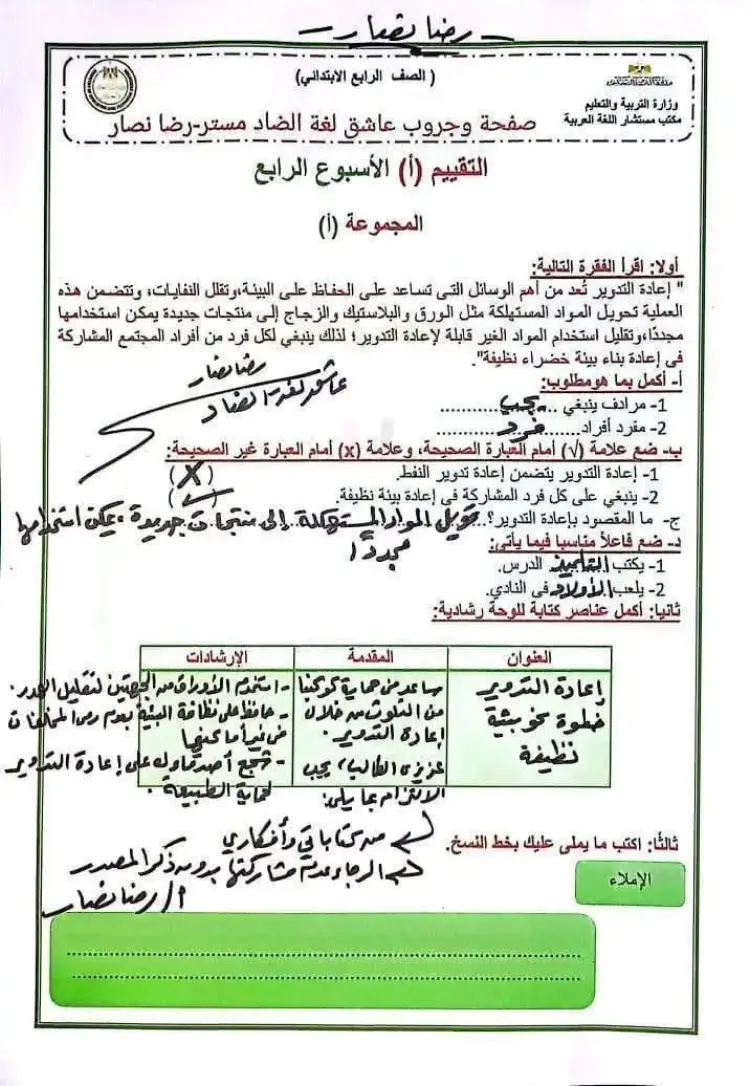 رضا نصار
(الصف الرابع الابتدائي)
وزارة التربية والتعليم
مكتب مستشار اللغة العربية
صفحة وجروب عاشق لغة الضاد مستر-رضا نصار
التقييم (أ) الأسبوع الرابع
المجموعة (أ)
أولا: اقرأ الفقرة التالية:
" إعادة التدوير تُعد من أهم الوسائل التى تساعد على الحفاظ على البيئة،وتقلل النفايات، وتتضمن هذه
العملية تحويل المواد المستهلكة مثل الورق والبلاستيك والزجاج إلى منتجات جديدة يمكن استخدامها
مجددًا،وتقليل استخدام المواد الغير قابلة لإعادة التدوير؛ لذلك ينبغي لكل فرد من أفراد المجتمع المشاركة
فى إعادة بناء بيئة خضراء نظيفة".
رضا نصار
عاشق لغة الضاد
أ- أكمل بما هومطلوب:
1- مرادف ينبغي ..يجب..........
2- مفرد أفراد.......فرد..........
ب- ضع علامة (√) أمام العبارة الصحيحة، وعلامة (x) أمام العبارة غير الصحيحة:
1- إعادة التدوير يتضمن إعادة تدوير النفط. (X)
2- ينبغي على كل فرد المشاركة فى إعادة بيئة نظيفة. (✓)
ج- ما المقصود بإعادة التدوير؟ تحويل المواد المستهلكة إلى منتجات جديدة، يمكن استخدامها
مجددًا
د- ضع فاعلاً مناسبا فيما يأتى:
1- يكتب التلميذ الدرس.
2- يلعب الأولاد فى النادي.
ثانيا: أكمل عناصر كتابة للوحة رشادية:
العنوان المقدمة الإرشادات
إعادة التدوير
خطوة نحو بيئة
نظيفة
ساعد من حماية كوكبنا
من التلوث من خلال
إعادة التدوير.
عزيزى الطالب، يجب
الالتزام بما يلى:
- استخدم الأوراق من الجهتين لتقليل الهدر.
- حافظ على نظافة البيئة بعدم رمى المخلفات
فى غير أماكنها
- شجع أصدقاءك على إعادة التدوير
لحماية الطبيعة.
ثالثًا: اكتب ما يملى عليك بخط النسخ.
من كتاباتي وأفكاري
الرجاء عدم مشاركتها بدون ذكر المصدر
أ/ رضا نصار
الإملاء